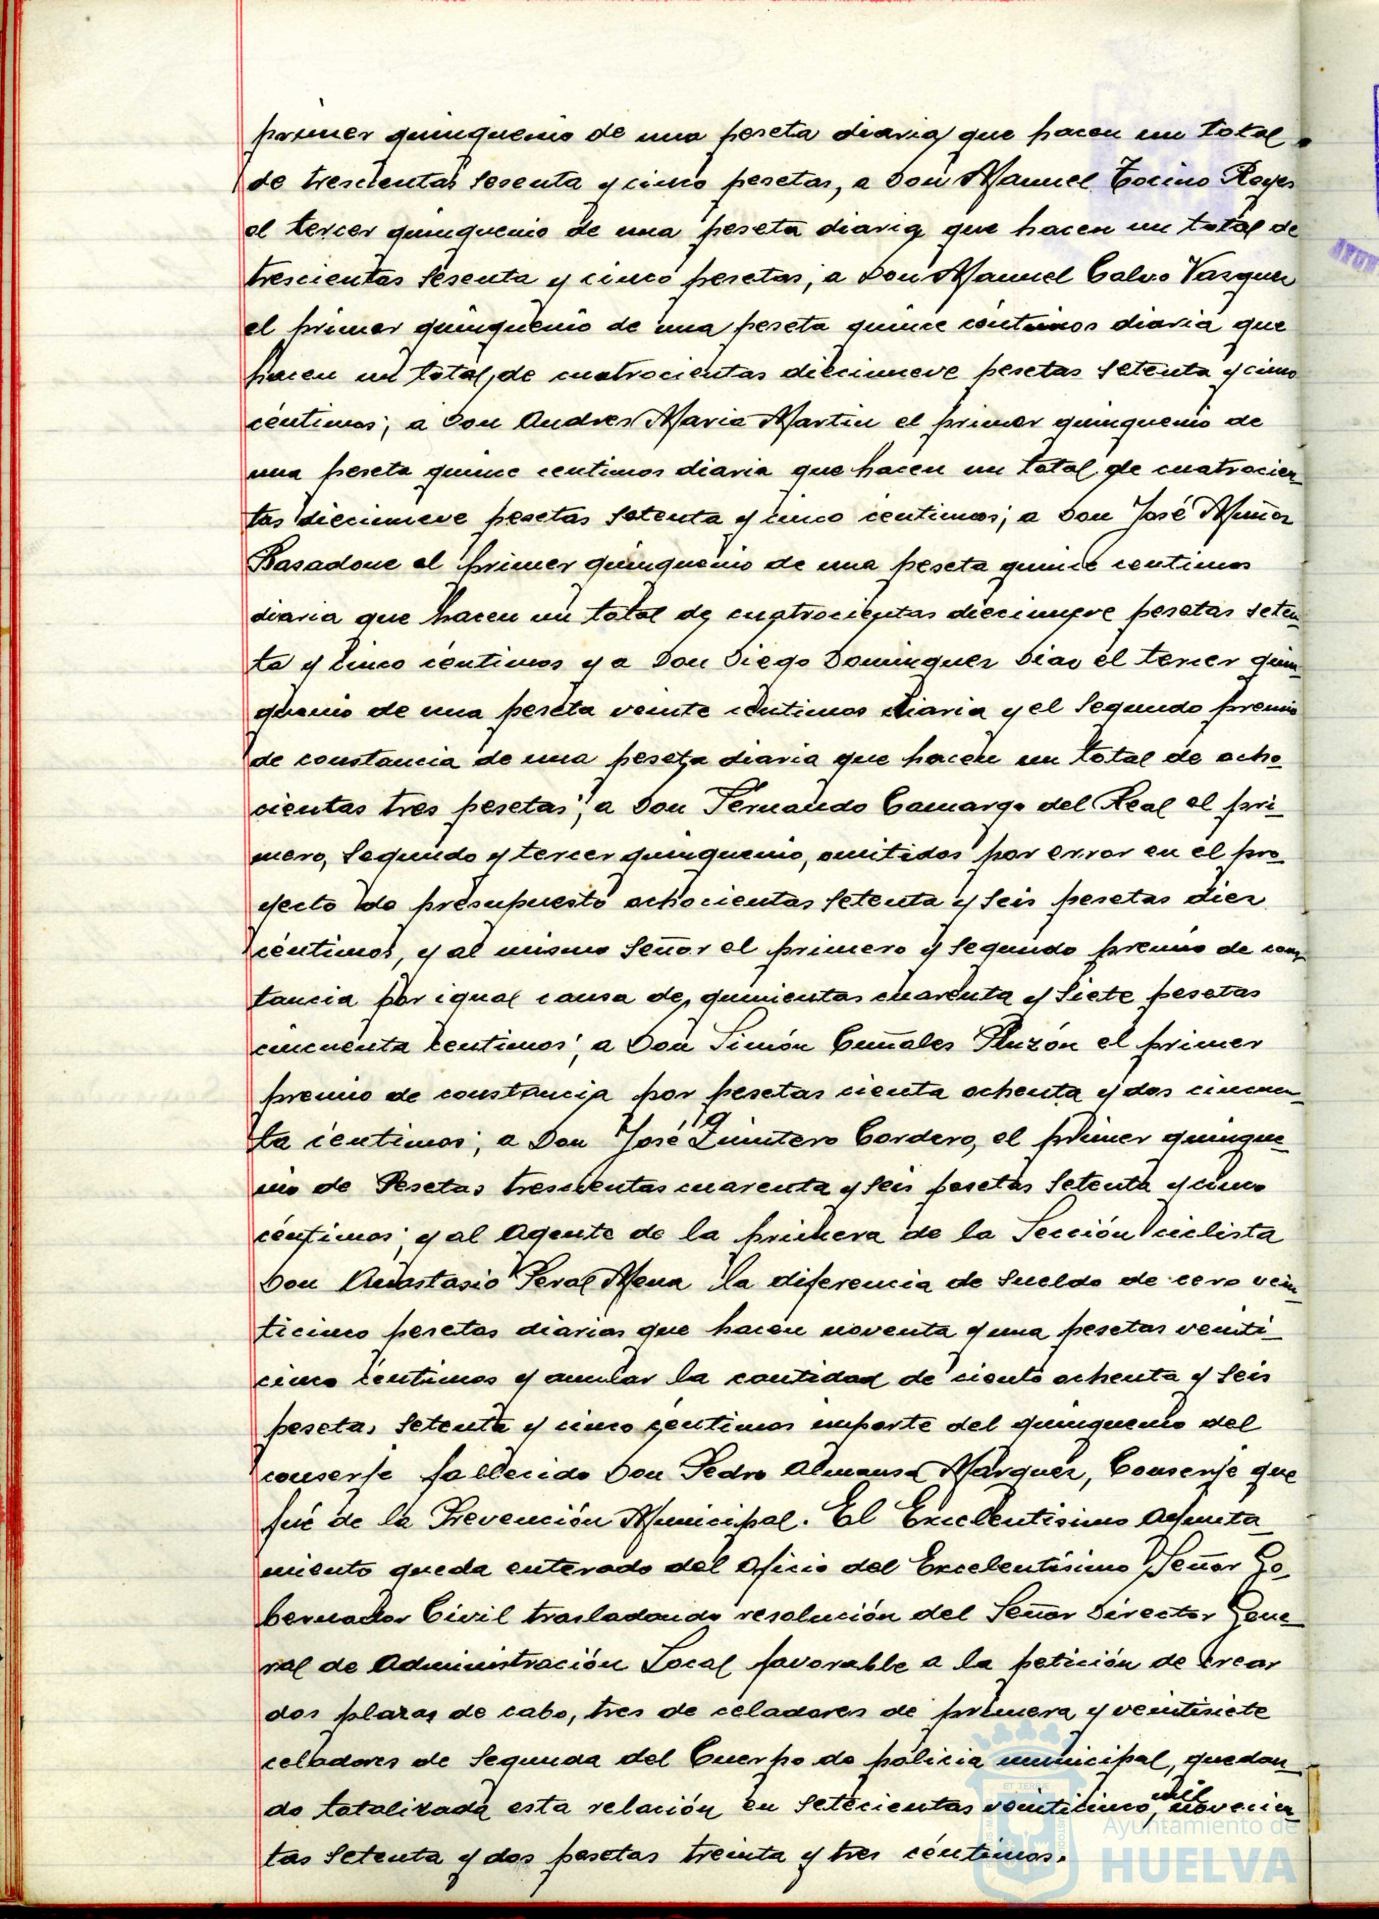 primer quinquenio de una peseta diaria que hacen un total
de trescientas sesenta y cinco pesetas, a Don Manuel Tocino Reyes
el tercer quinquenio de una peseta diaria que hacen un total de
trescientas sesenta y cinco pesetas; a Don Manuel Calvo Vazquez
el primer quinquenio de una peseta quince céntimos diaria que
hacen un total, de cuatrocientas diecinueve pesetas setenta y cinco
céntimos; a Don Andres Maria Martin el primer quinquenio de
una peseta quince centimos diaria que hacen un total de cuatrocien-
tas diecinueve pesetas setenta y cinco céntimos; a Don José Muñoz
Rasadone el primer quinquenio de una peseta quince centimos
diaria que hacen un total de cuatrocientas diecinueve pesetas seten-
ta y cinco céntimos y a Don Diego Dominguez Diaz el tercer quin-
quenio de una peseta veinte céntimos diaria y el segundo premio
de constancia de una peseta diaria que hacen un total de ocho-
cientas tres pesetas; a Don Fernando Camargo del Real el pri-
mero, segundo y tercer quinquenio, omitidos por error en el pro-
yecto de presupuesto ochocientas setenta y seis pesetas diez
céntimos, y al mismo Señor el primero y segundo premio de cons-
tancia por igual causa de, quinientas cuarenta y siete pesetas
cincuenta centimos; a Don Simón Cumales Pluzón el primer
premio de constancia por pesetas ciento ochenta y dos cincuen-
ta céntimos; a Don José Quintero Cordero, el primer quinque-
nio de Pesetas trescientas cuarenta y seis pesetas setenta y cinco
céntimos; y al Agente de la primera de la Sección ciclista
Don Anastasio Peral Mena la diferencia de sueldo de cero vein-
ticinco pesetas diarias que hacen noventa y una pesetas veinti-
cinco céntimos y anular la cantidad de ciento ochenta y seis
pesetas setenta y cinco céntimos importe del quinquenio del
conserje fallecido Don Pedro Almansa Marquez, Conserje que
fué de la Prevención Municipal. El Excelentísimo Ayunta-
miento queda enterado del oficio del Excelentísimo Señor Go-
bernador Civil trasladando resolución del Señor Director Gene-
ral de Administración Local favorable a la petición de crear
dos plazas de cabo, tres de celadores de primera y veintisiete
celadores de segunda del Cuerpo de policia municipal, quedan-
do totalizada esta relación en setecientas veinticinco mil novecien-
tas setenta y dos pesetas treinta y tres céntimos.
Ayuntamiento de
HUELVA